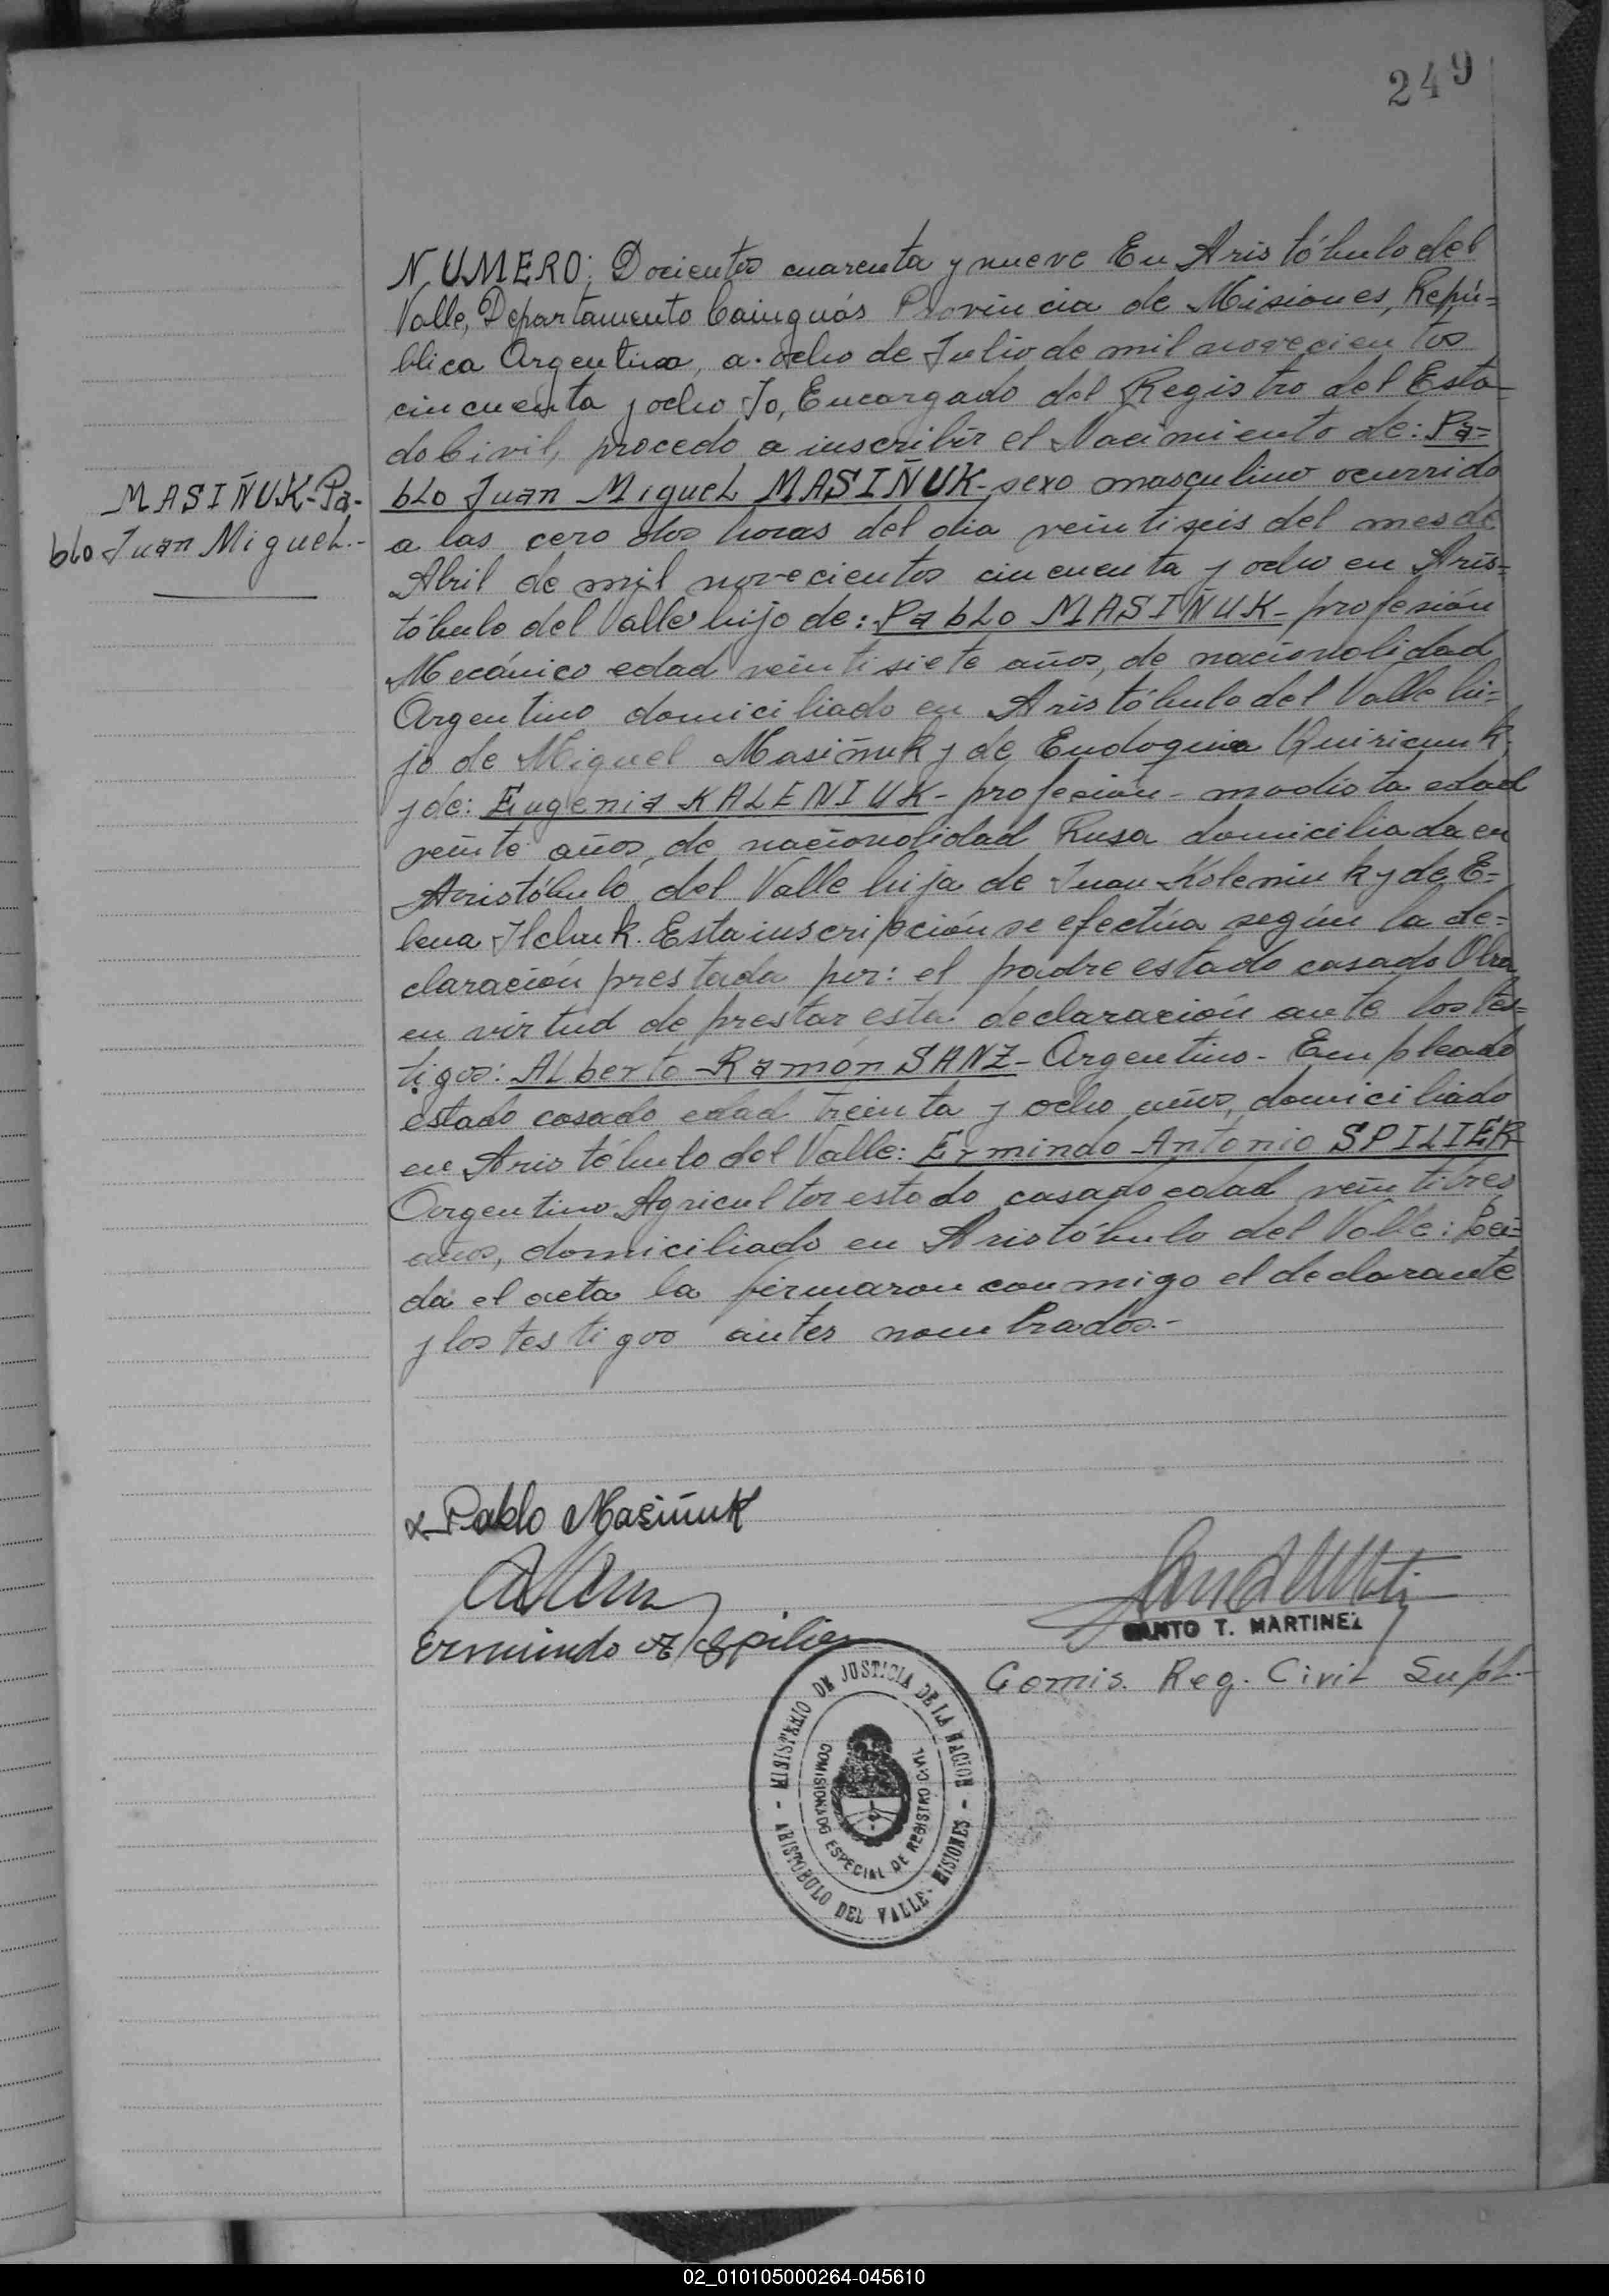 249
NUMERO: Docientos cuarenta y nueve En Aristóbulo del
Valle, Departamento Cainguás Provincia de Misiones, Repú=
blica Argentina, a. ocho de Julio de mil novecientos
cincuenta y ocho Yo, Encargado del Registro del Esta-
do Civil, procedo a inscribir el Nacimiento de: Pa=
blo Juan Miguel MASIÑUK- sexo masculino ocurrido
MASIÑUK-Pa-
blo Juan Miguel.-
a las cero dos horas del dia veintiseis del mes de
Abril de mil novecientos cincuenta y ocho en Aris=
tóbulo del Valle hijo de: Pablo MASIÑUK- profesión
Mecánico edad veintisiete años, de nacionalidad
Argentino domiciliado en Aristóbulo del Valle hi=
jo de Miguel Masiñuk y de Eudoquia Quiricuuk,
y de: Eugenia KALENIUK- profeción- modista edad
veinte años, de nacionalidad Rusa domiciliada en
Aristóbulo del Valle hija de Juan Koleniuk y de E=
lena Ilchuk. Esta inscripción se efectúa según la de=
claración prestada por: el padre estado casado Obra
en virtud de prestar esta declaración ante los tes=
tigos: Alberto Ramón SANZ- Argentino- Empleado
estado casado edad treinta y ocho años, domiciliado
en Aristóbulo del Valle: Ermindo Antonio SPILIER
Argentino Agricultor estado casado edad veintitres
años, domiciliado en Aristóbulo del Valle: Leí=
da el acta la firmaron conmigo el declarante
y los testigos antes nombrados.-
Pablo Masiñuk
Ermindo A Spilier
SANTO T. MARTINEZ
Comis. Reg. Civil Supl.-
MINISTERIO DE JUSTICIA DE LA NACION
COMISIONADO ESPECIAL DE REGISTRO CIVIL
ARISTOBULO DEL VALLE - MISIONES
02_010105000264-045610